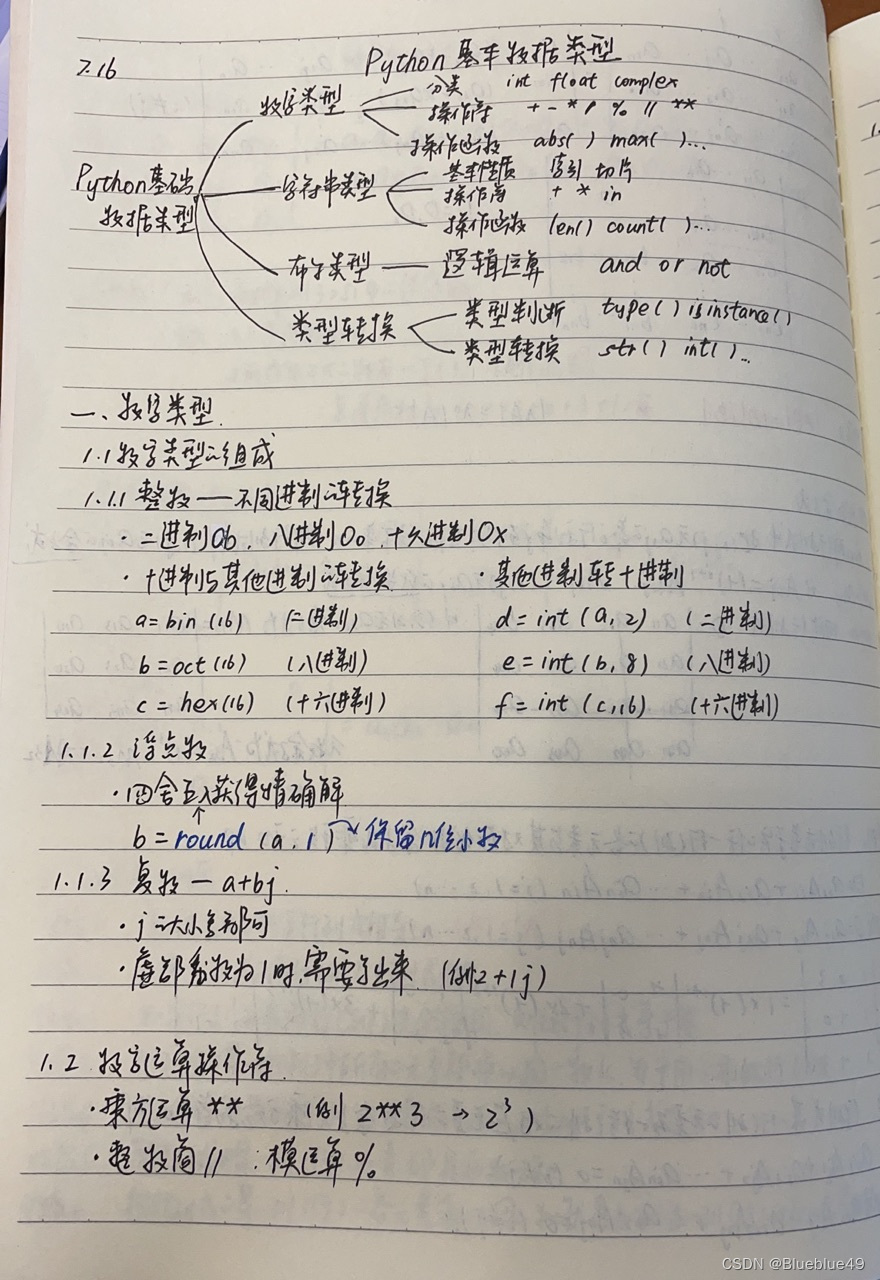 2.16 Python基本数据类型
数字类型 分类 int float complex
操作符 + - * / % // **
操作函数 abs( ) max( )...
Python基础
数据类型
字符串类型 基本性质 索引 切片
操作符 + * in
操作函数 len() count( )...
布尔类型 — 逻辑运算 and or not
类型转换 类型判断 type( ) isinstance( )
类型转换 str( ) int( )...
一、数字类型.
1.1 数字类型的组成
1.1.1 整数——不同进制的转换
· 二进制0b、八进制0o、十六进制0x
· 十进制与其他进制的转换 · 其他进制转十进制
a=bin(16) (二进制) d=int(a,2) (二进制)
b=oct(16) (八进制) e=int(b,8) (八进制)
c=hex(16) (十六进制) f=int(c,16) (十六进制)
1.1.2 浮点数
· 四舍五入获得精确解
↑
b=round(a,1) → 保留n位小数
1.1.3 复数—a+bj.
· j的大小写都可
· 虚部系数为1时,需要写出来 (例2+1j)
1.2 数字运算操作符.
· 乘方运算** (例 2**3 → 2³)
· 整数商// : 模运算%
CSDN @Blueblue49